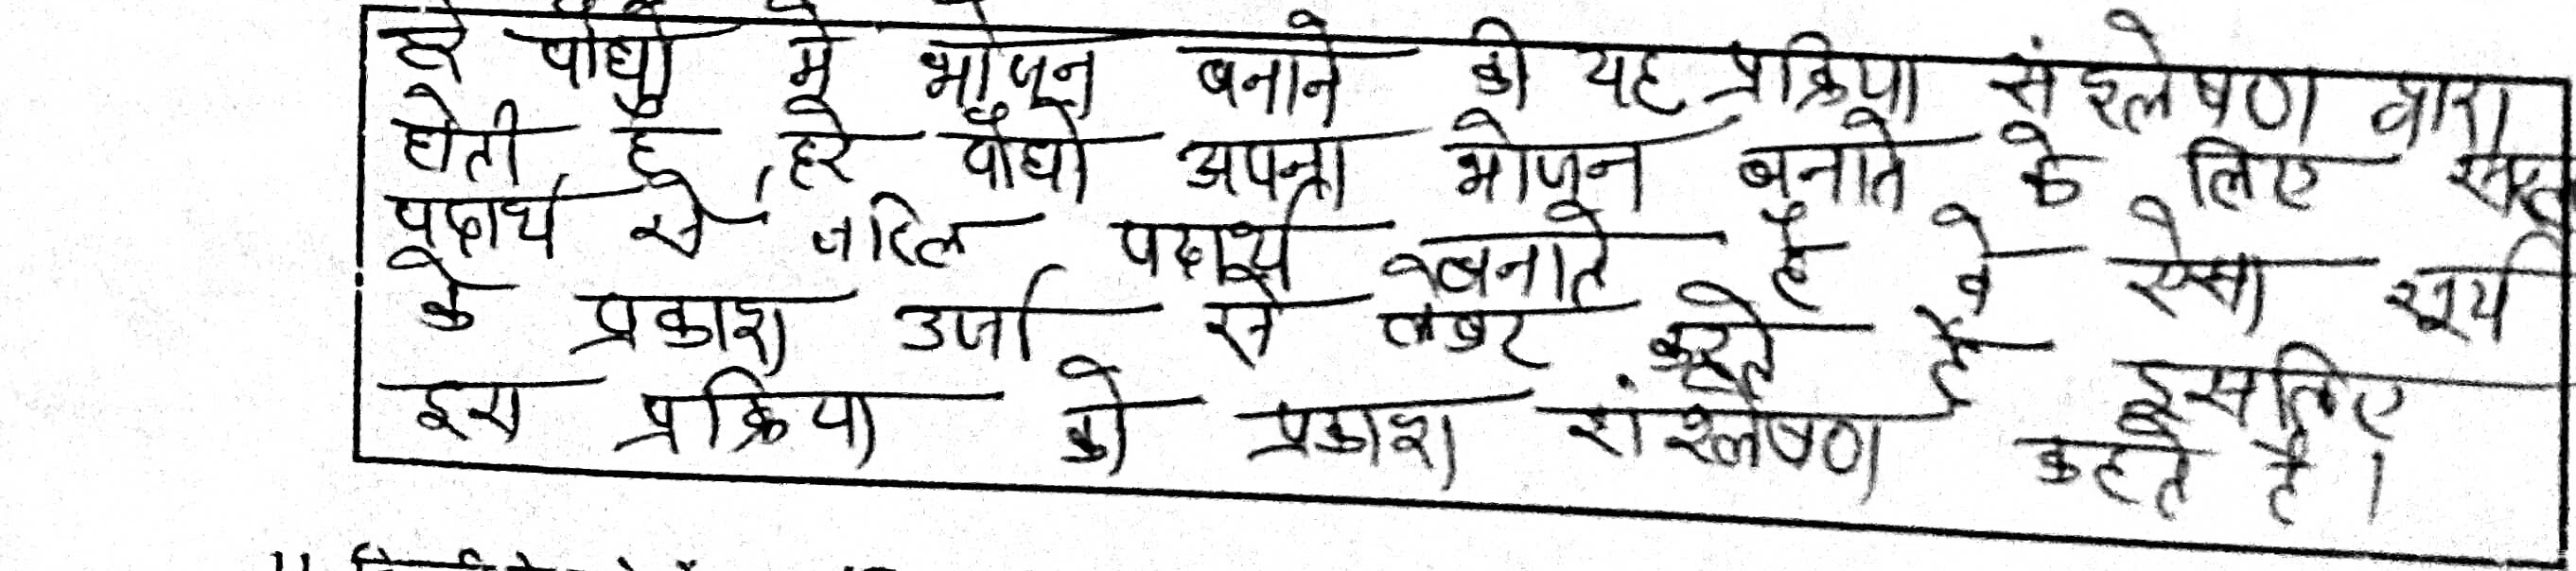 हरे पौधों मे भोजन बनाने की यह प्रक्रिया संश्लेषण द्वारा
होती है, हरे पौधो अपना भोजन बनाते के लिए सरल
पदार्थ से जटिल पदार्थ बनाते है वे ऐसा सूर्य
के प्रकाश उर्जा से लेकर करते है इसलिए
इस प्रक्रिया को प्रकाश संश्लेषण कहते है।